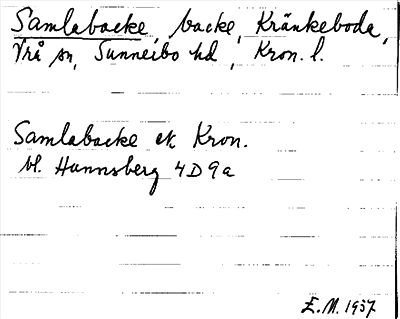 Samlabacke, backe, Kränkeboda,
Vrå sn, Sunnerbo hd, Kron. l.
Samlabacke ek Kron.
bl. Hannsberg 4D9a
E.M. 1937